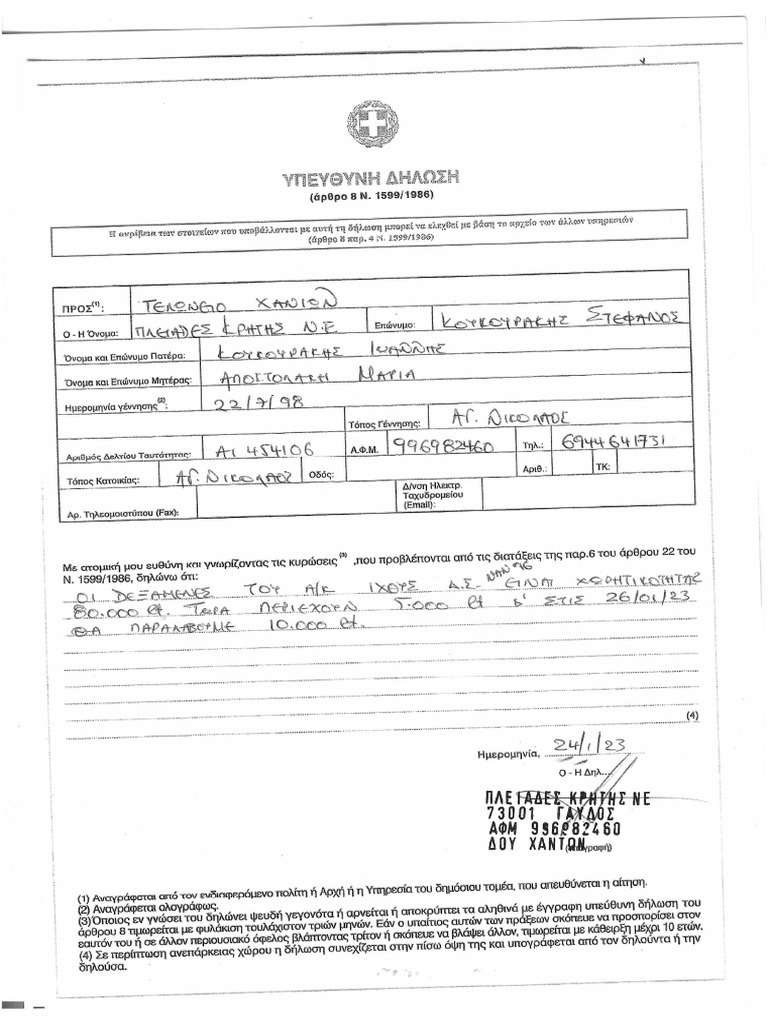 ΥΠΕΥΘΥΝΗ ΔΗΛΩΣΗ
(άρθρο 8 Ν. 1599/1986)
Η ακρίβεια των στοιχείων που υποβάλλονται με αυτή τη δήλωση μπορεί να ελεχθεί με βάση το αρχείο των άλλων υπηρεσιών
(άρθρο 8 παρ. 4 Ν. 1599/1986)
ΠΡΟΣ(1): ΤΕΛΩΝΕΙΟ ΧΑΝΙΩΝ
Ο - Η Όνομα: ΠΛΕΙΑΔΕΣ ΚΡΗΤΗΣ Ν.Ε Επώνυμο: ΚΟΥΚΟΥΡΑΚΗΣ ΣΤΕΦΑΝΟΣ
Όνομα και Επώνυμο Πατέρα: ΚΟΥΚΟΥΡΑΚΗΣ ΙΩΑΝΝΗΣ
Όνομα και Επώνυμο Μητέρας: ΑΠΟΣΤΟΛΑΚΗ ΜΑΡΙΑ
Ημερομηνία γέννησης(2): 22/7/98
Τόπος Γέννησης: ΑΓ. ΝΙΚΟΛΑΟΣ
Αριθμός Δελτίου Ταυτότητας: ΑΙ 454106 Α.Φ.Μ. 996982460 Τηλ.: 6944641731
Τόπος Κατοικίας: ΑΓ. ΝΙΚΟΛΑΟΣ Οδός: Αριθ.: ΤΚ:
Αρ. Τηλεομοιοτύπου (Fax): Δ/νση Ηλεκτρ. Ταχυδρομείου (Email):
Με ατομική μου ευθύνη και γνωρίζοντας τις κυρώσεις (3) ,που προβλέπονται από τις διατάξεις της παρ.6 του άρθρου 22 του
Ν. 1599/1986, δηλώνω ότι:
ΟΙ ΔΕΞΑΜΕΝΕΣ ΤΟΥ Α/Κ ΙΧΘΥΣ Α.Σ ΝΑΝ 96 ΕΙΝΑΙ ΧΩΡΗΤΙΚΟΤΗΤΑΣ
80.000 lt. ΤΩΡΑ ΠΕΡΙΕΧΟΥΝ 5.000 lt ΣΤΙΣ 26/01/23
ΘΑ ΠΑΡΑΛΑΒΟΥΜΕ 10.000 lt.
(4)
Ημερομηνία, 24/1/23
Ο - Η Δηλ....
ΠΛΕΙΑΔΕΣ ΚΡΗΤΗΣ ΝΕ
73001 ΓΑΥΔΟΣ
ΑΦΜ 996982460
ΔΟΥ ΧΑΝΙΩΝ
(Υπογραφή)
(1) Αναγράφεται από τον ενδιαφερόμενο πολίτη ή Αρχή ή η Υπηρεσία του δημόσιου τομέα, που απευθύνεται η αίτηση.
(2) Αναγράφεται ολογράφως.
(3) Όποιος εν γνώσει του δηλώνει ψευδή γεγονότα ή αρνείται ή αποκρύπτει τα αληθινά με έγγραφη υπεύθυνη δήλωση του
άρθρου 8 τιμωρείται με φυλάκιση τουλάχιστον τριών μηνών. Εάν ο υπαίτιος αυτών των πράξεων σκόπευε να προσπορίσει στον
εαυτόν του ή σε άλλον περιουσιακό όφελος βλάπτοντας τρίτον ή σκόπευε να βλάψει άλλον, τιμωρείται με κάθειρξη μέχρι 10 ετών.
(4) Σε περίπτωση ανεπάρκειας χώρου η δήλωση συνεχίζεται στην πίσω όψη της και υπογράφεται από τον δηλούντα ή την
δηλούσα.